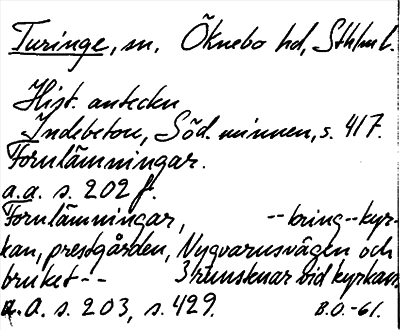 Turinge, sn. Öknebo hd, Sthlm l.
Hist. anteckn
Indebetou, Söd. minnen, s. 417.
Fornlämningar.
a.a. s. 202 f.
Fornlämningar, --kring--kyr-
kan, prestgården, Nygvarnsvägen och
bruket-- 3 runstenar vid kyrkan.
a.a. s. 203, s. 429. B.O.-61.